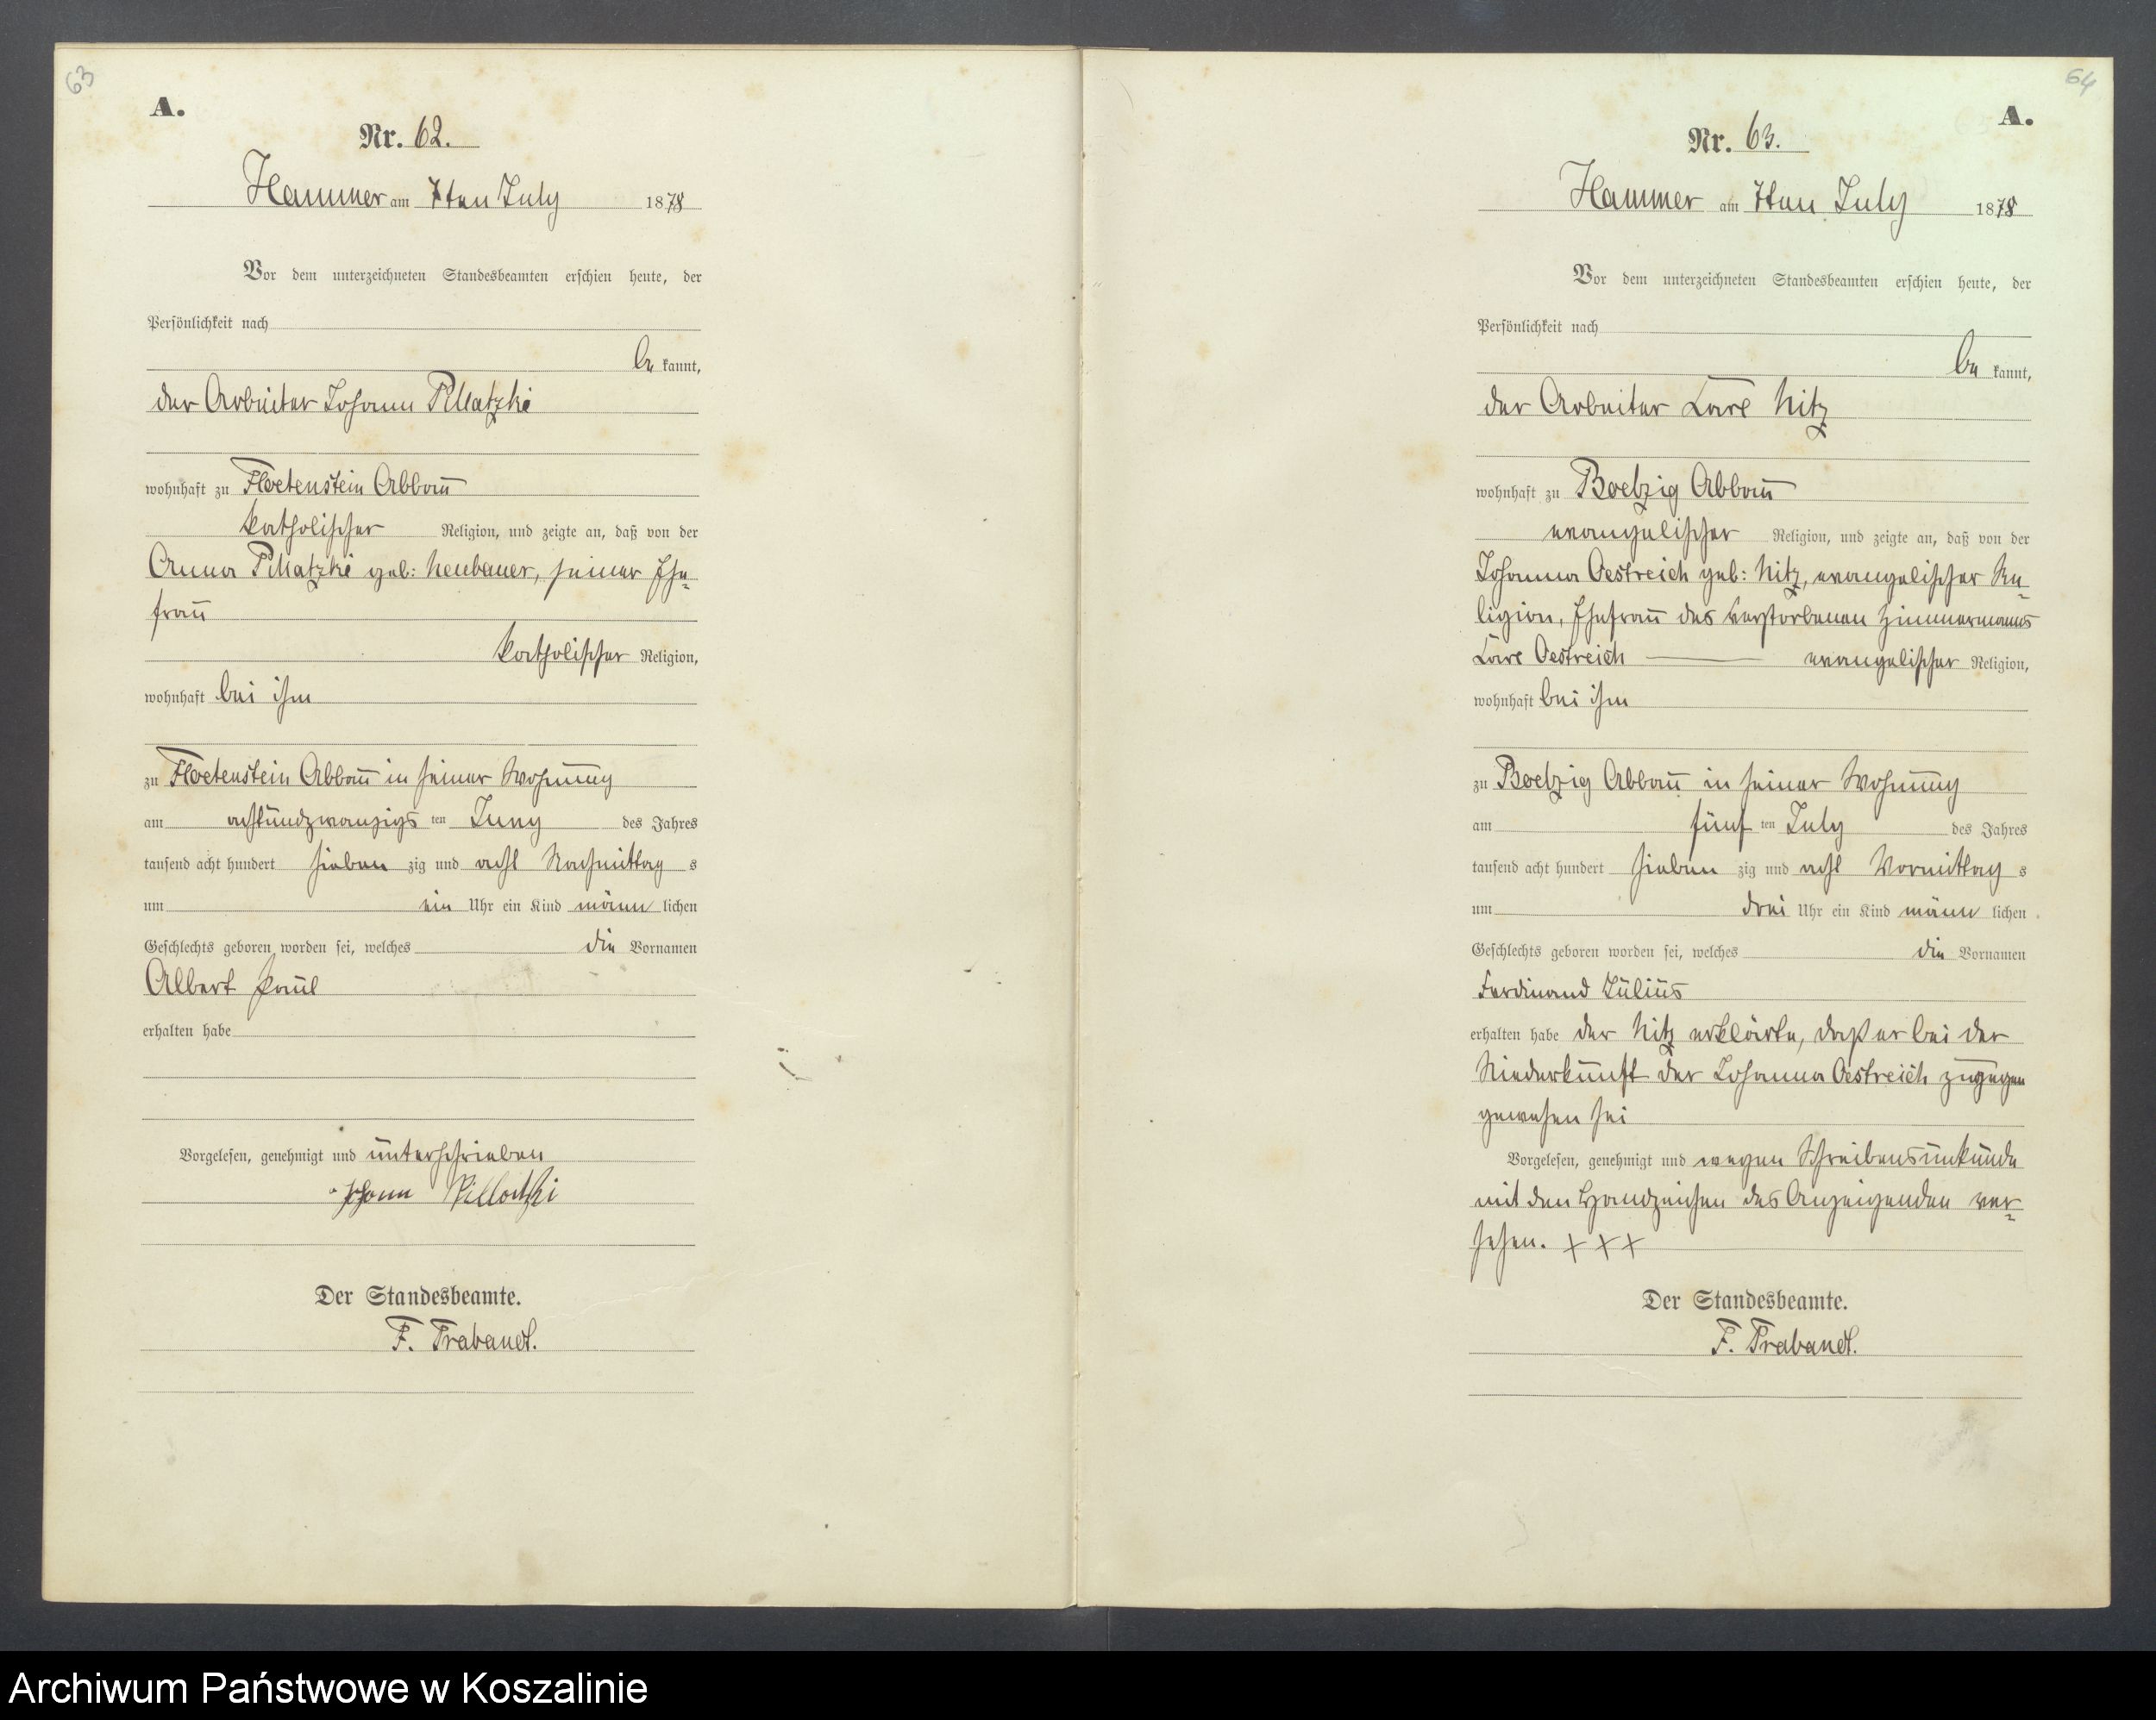 63
A.
Nr. 62.
Hammer am 7ten July 1878
Vor dem unterzeichneten Standesbeamten erschien heute, der
Persönlichkeit nach
be kannt,
der Arbeiter Johann Pillatzke
wohnhaft zu Floetenstein Abbau
katholischer Religion, und zeigte an, daß von der
Anna Pillatzke geb: Neubauer, seiner Ehe-
frau
katholischer Religion,
wohnhaft bei ihm
zu Floetenstein Abbau in seiner Wohnung
am achtundzwanzigs ten Juny des Jahres
tausend acht hundert sieben zig und acht Nachmittag s
um ein Uhr ein Kind männ lichen
Geschlechts geboren worden sei, welches die Vornamen
Albert Paul
erhalten habe
Vorgelesen, genehmigt und unterschrieben
Johann Pillatzki
Der Standesbeamte.
F. Trabandt.
64
A.
Nr. 63.
Hammer am 7ten July 1878
Vor dem unterzeichneten Standesbeamten erschien heute, der
Persönlichkeit nach
be kannt,
der Arbeiter Carl Nitz
wohnhaft zu Boelzig Abbau
evangelischer Religion, und zeigte an, daß von der
Johanna Oestreich geb: Nitz, evangelischer Re-
ligion, Ehefrau des verstorbenen Zimmermanns
Carl Oestreich evangelischer Religion,
wohnhaft bei ihm
zu Boelzig Abbau in seiner Wohnung
am fünf ten July des Jahres
tausend acht hundert sieben zig und acht Vormittag s
um drei Uhr ein Kind männ lichen
Geschlechts geboren worden sei, welches die Vornamen
Ferdinand Julius
erhalten habe der Nitz erklärte, daß er bei der
Niederkunft der Johanna Oestreich zugegen
gewesen sei
Vorgelesen, genehmigt und wegen Schreibensunkunde
mit den Handzeichen des Anzeigenden ver-
sehen. + + +
Der Standesbeamte.
F. Trabandt.
Archiwum Państwowe w Koszalinie